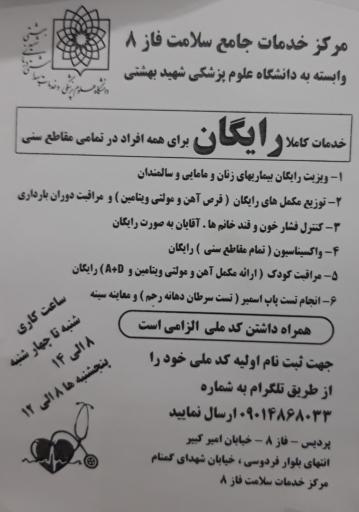 مرکز خدمات جامع سلامت فاز ۸
وابسته به دانشگاه علوم پزشکی شهید بهشتی
خدمات کاملا رایگان برای همه افراد در تمامی مقاطع سنی
۱- ویزیت رایگان بیماریهای زنان و مامایی و سالمندان
۲- توزیع مکمل های رایگان ( قرص آهن و مولتی ویتامین ) و مراقبت دوران بارداری
۳- کنترل فشار خون و قند خانم ها ، آقایان به صورت رایگان
۴- واکسیناسیون ( تمام مقاطع سنی ) رایگان
۵- مراقبت کودک ( ارائه مکمل آهن و مولتی ویتامین و A+D) رایگان
۶- انجام تست پاپ اسمیر ( تست سرطان دهانه رحم ) و معاینه سینه
همراه داشتن کد ملی الزامی است
ساعت کاری
شنبه تا چهار شنبه
۸ الی ۱۴
پنجشنبه ها ۸ الی ۱۲
جهت ثبت نام اولیه کد ملی خود را
از طریق تلگرام به شماره
۰۹۰۱۴۸۶۸۰۳۳ ارسال نمایید
پردیس - فاز ۸ - خیابان امیر کبیر
انتهای بلوار فردوسی ، خیابان شهدای گمنام
مرکز خدمات سلامت فاز ۸